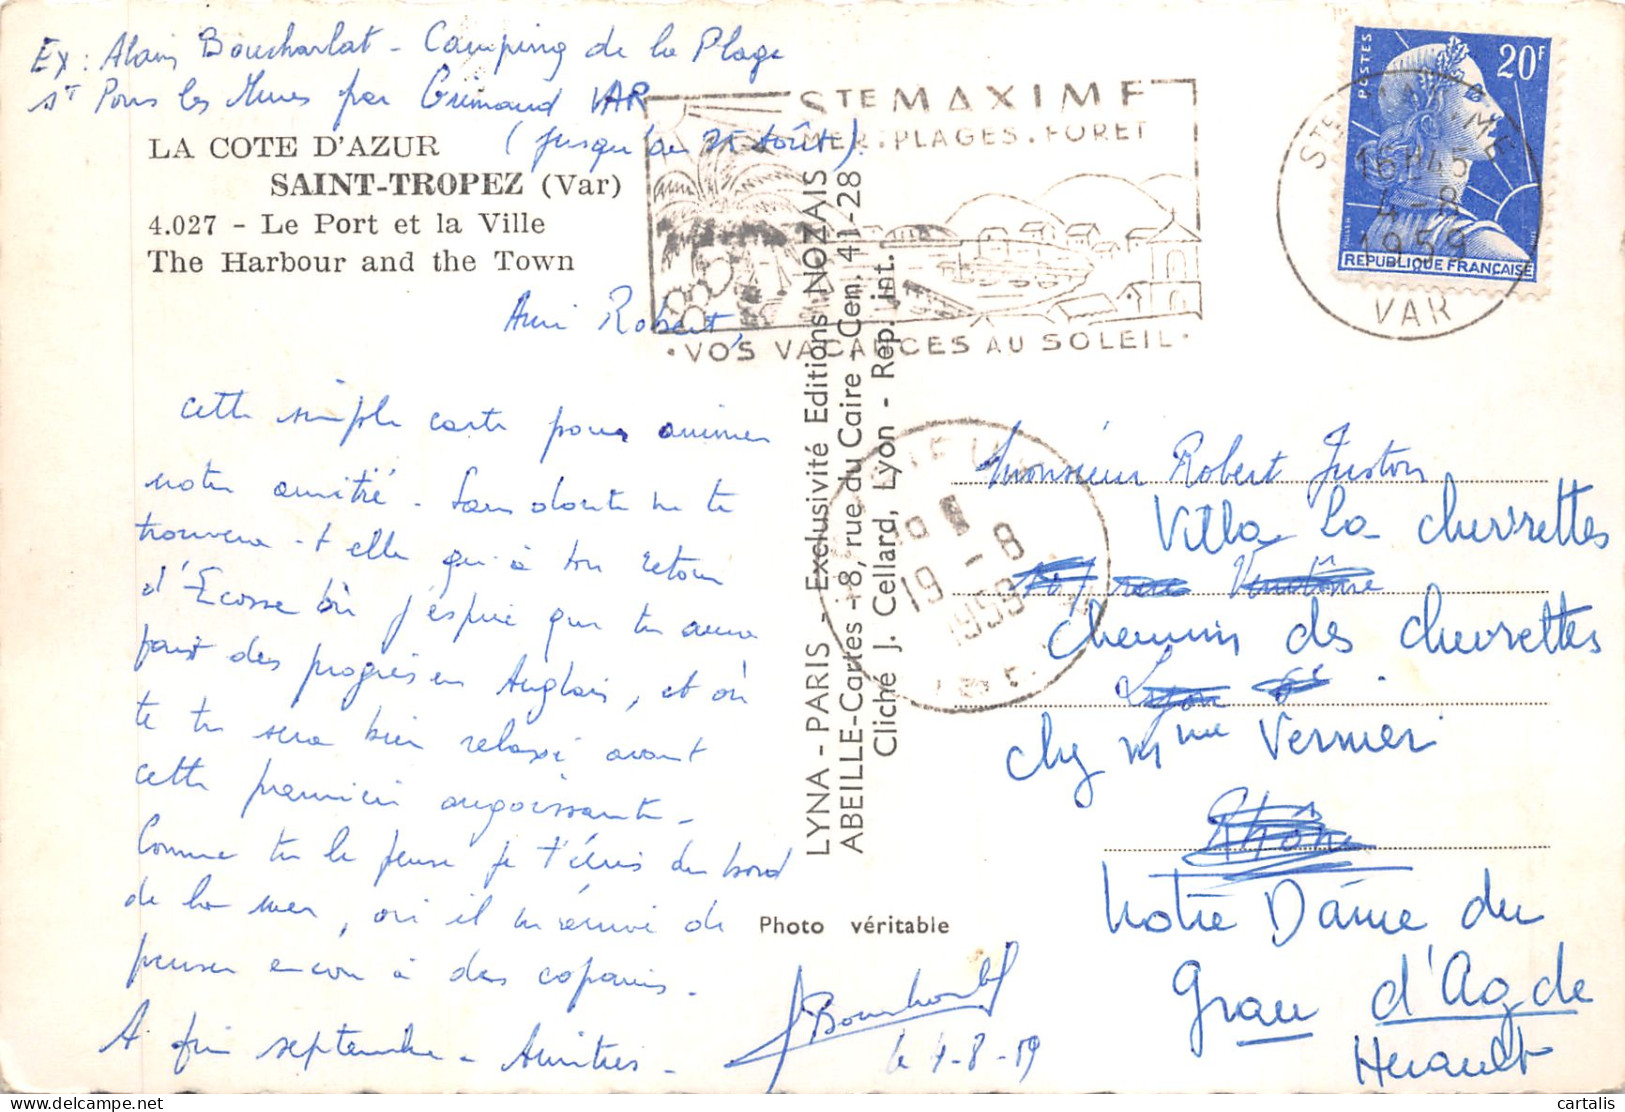 Ex : Alain Boucharlat - Camping de la Plage
St Pons les Mures par Grimaud VAR
(jusqu'au 25 août).
LA COTE D'AZUR
SAINT-TROPEZ (Var)
4.027 - Le Port et la Ville
The Harbour and the Town
STE MAXIME
MER.PLAGES.FORET
·VOS VACANCES AU SOLEIL·
POSTES
20F
REPUBLIQUE FRANÇAISE
STE MAXIME
16H45
4-8
1959
VAR
Ami Robert,
cette simple carte pour animer
notre amitié. Sans doute ne te
trouvera-t-elle qu'à ton retour
d'Ecosse où j'espère que tu auras
fait des progrès en Anglais, et où
te tu sera bien relaxé avant
cette première angoissante.
Comme tu le pense je t'écris du bord
de la mer, où il m'arrive de
penser encore à des copains.
A fin septembre - Amitiés.
ABoucharlat
le 4-8-59
LYNA - PARIS - Exclusivité Editions NOZAIS
ABEILLE-Cartes - 8, rue du Caire - Cen. 41-28
Cliché J. Cellard, Lyon - Rep. int.
Photo véritable
19-8
1959
Monsieur Robert Juston
Villa La chevrettes
107 rue Vendôme
Chemin des chevrettes
Lyon 6e
chez Mme Vernier
Rhône
Notre Dame du
Grau d'Agde
Herault
cartalis